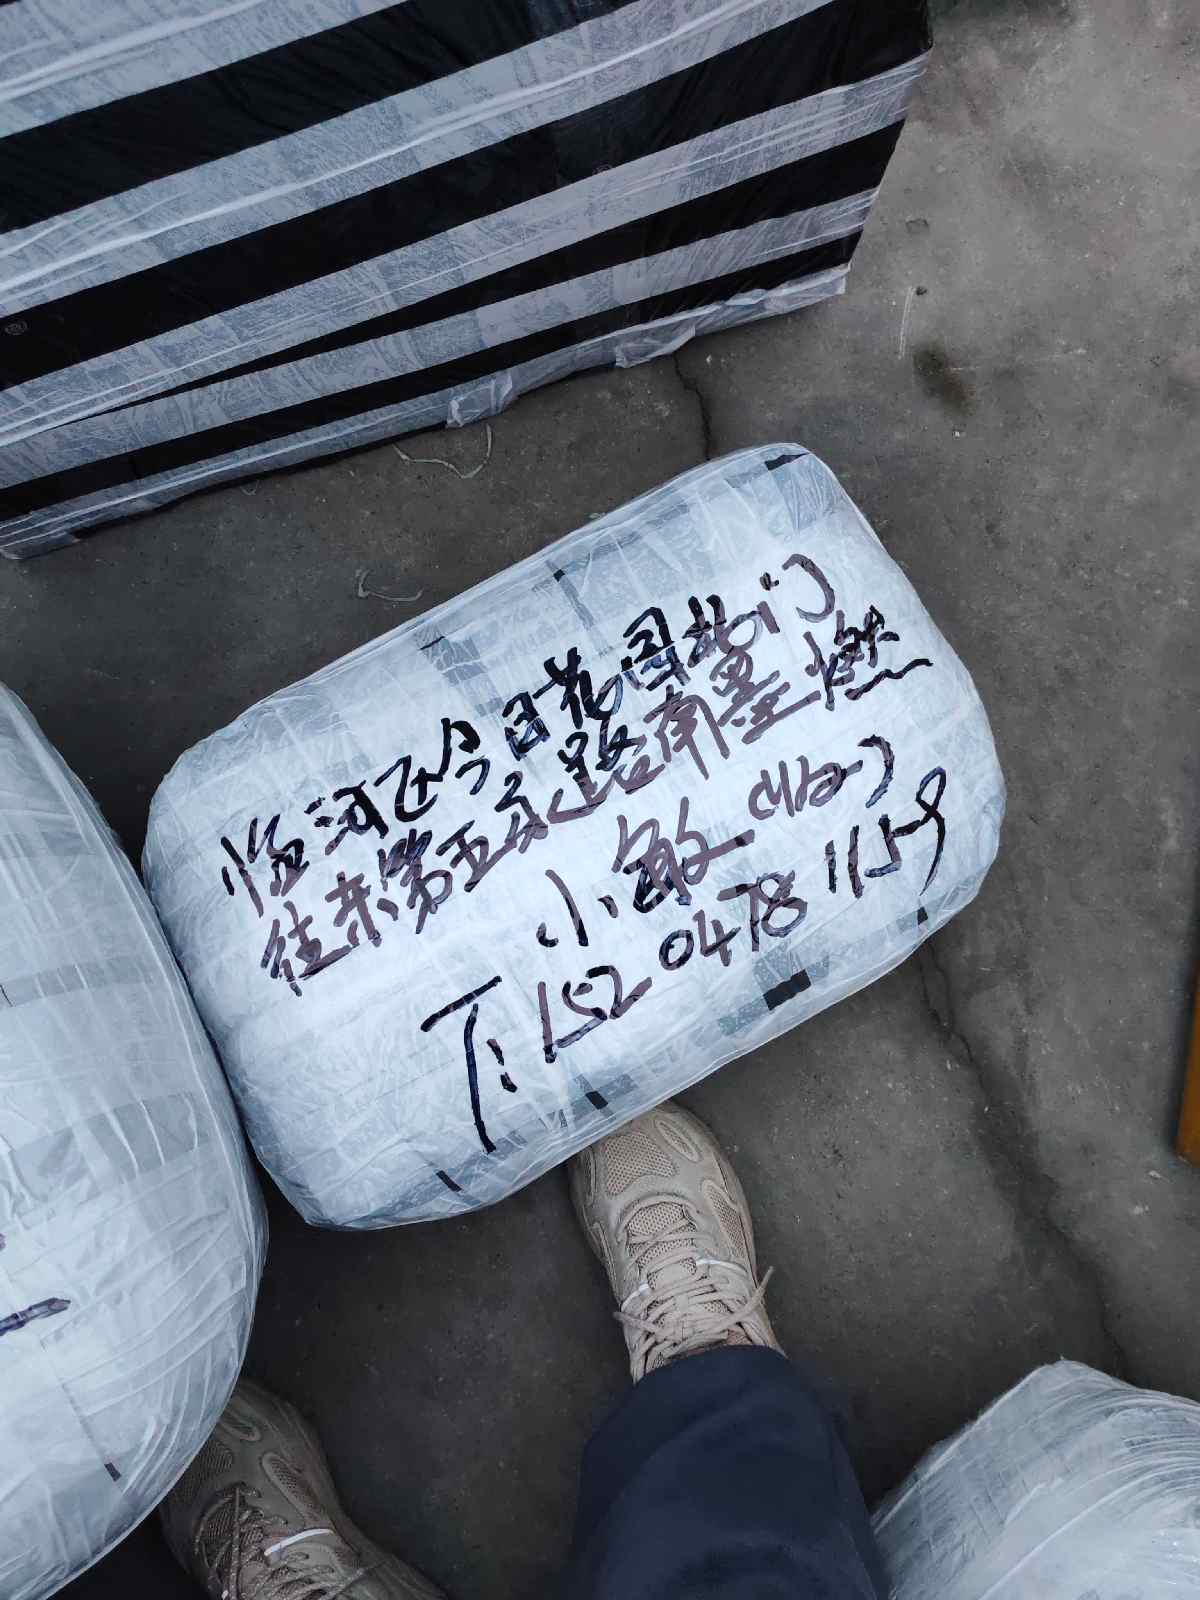 临河区今日花园北门
往东第五条道路南墨燃
小敏(收)
T:152 0478 1159